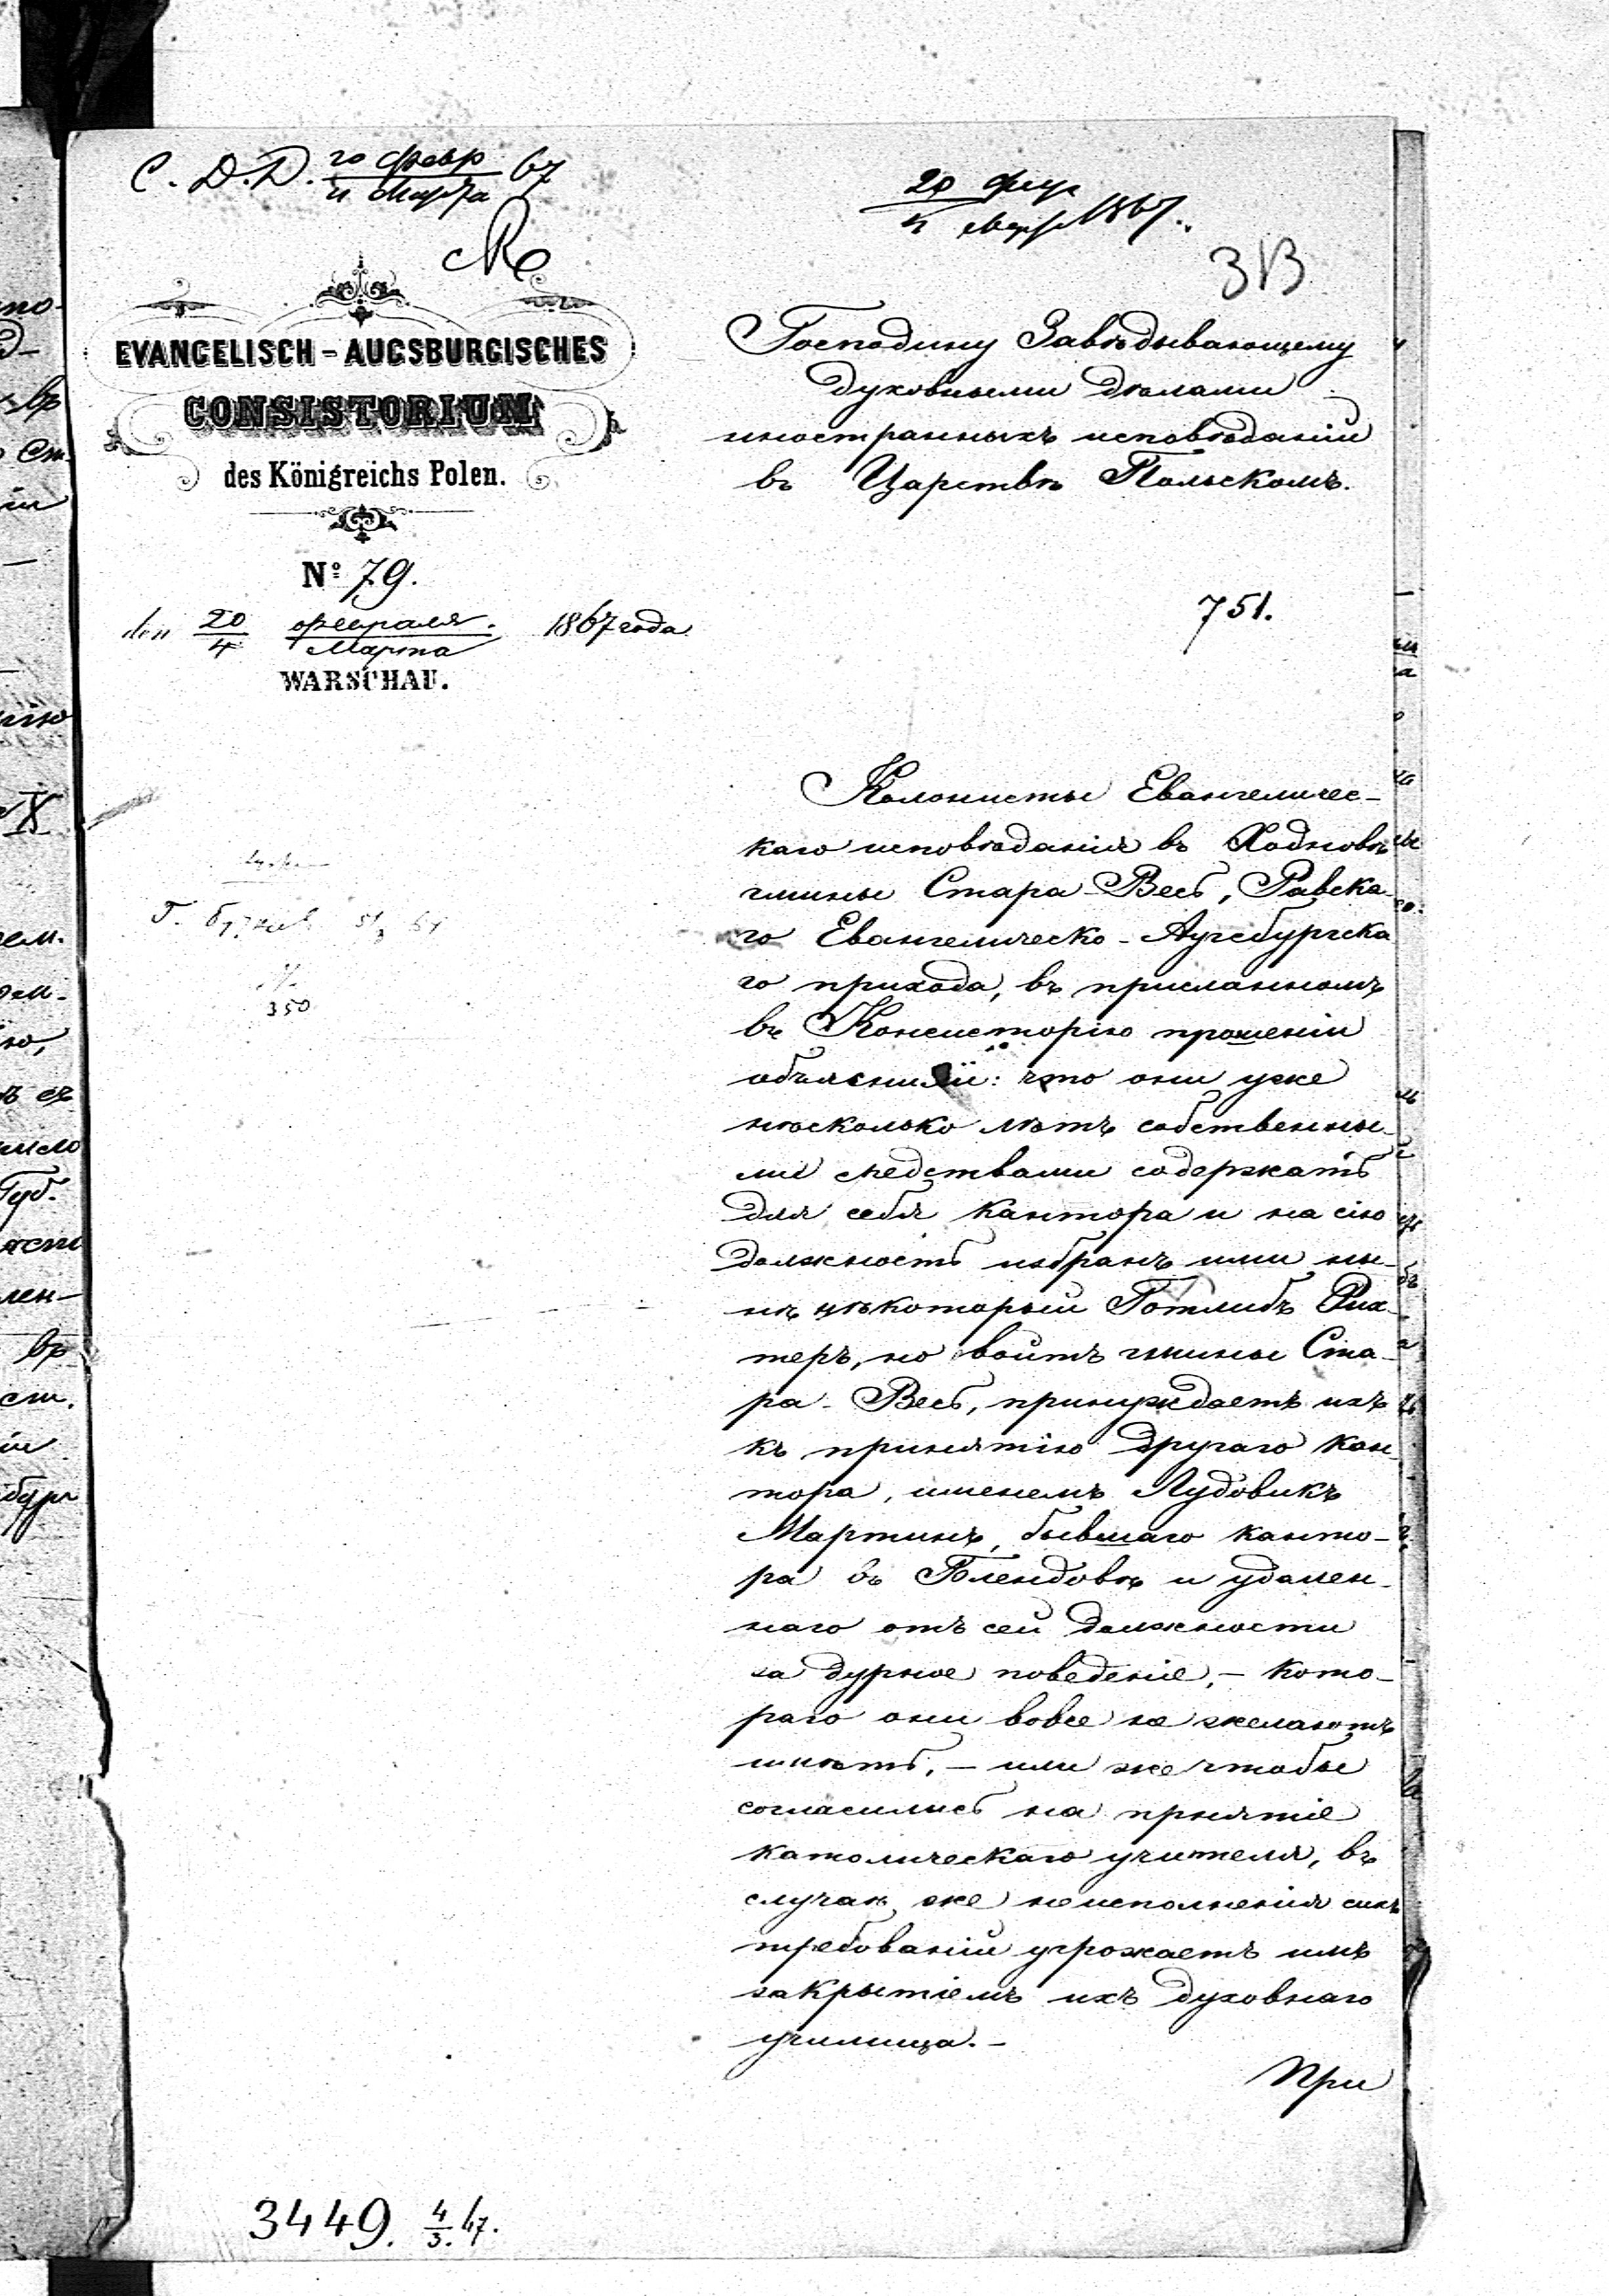 С. Д. Д. 20 февр 67
4 Марта
20 февр
4 Марта 1867.
313
EVANGELISCH-AUGSBURGISCHES
CONSISTORIUM
des Königreichs Polen.
Nº 79.
den 20 февраля. 1867 года
4 Марта
WARSCHAU.
Господину Завѣдывающему
духовными дѣлами
иностранныхъ исповѣданій
въ Царствѣ Польскомъ.
751.
Колонисты Евангеличес-
каго исповѣданія въ Ходновѣ
гмины Стара-Весь, Равска-
го Евангелическо-Аугсбургска
го прихода, въ присланномъ
въ Консисторію прошеніи
объяснили: что они уже
нѣсколько лѣтъ собственны-
ми средствами содержатъ
для себя кантора и на сію
должность избранъ ими ны-
нѣ нѣкоторый Готлибъ Рих-
теръ, но войтъ гмины Ста-
ра-Весь, принуждаетъ ихъ
къ принятію другаго кан-
тора, именемъ Лудовикъ
Мартинъ, бывшаго канто-
ра въ Блендовѣ и удален-
наго отъ сей должности
за дурное поведеніе, - кото-
раго они вовсе не желаютъ
имѣть, - или же чтобы
согласились на прнятіе
католическаго учителя, въ
случаѣ же неисполненія сихъ
требованій угрожаетъ имъ
закрытіемъ ихъ духовнаго
училища.-
При
350
3449. 4/3. 67.